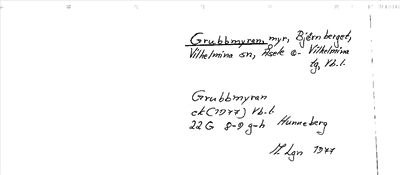 Grubbmyran, myr, Björnberget,
Vilhelmina sn, Åsele o- Vilhelmina
tg, Vb.l.
Grubbmyran
ek (1977) Vb.l.
22 G 8-9 g-h Hunneberg
M. Lgn 1977